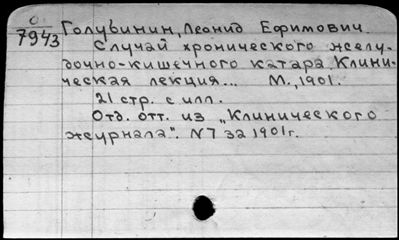 О
7943
Голубинин, Леонид Ефимович.
Случай хронического желу-
дочно-кишечного катара. Клини-
ческая лекция... М., 1901.
21 стр. с илл.
Отд. отт. из „Клинического
журнала". N7 за 1901г.